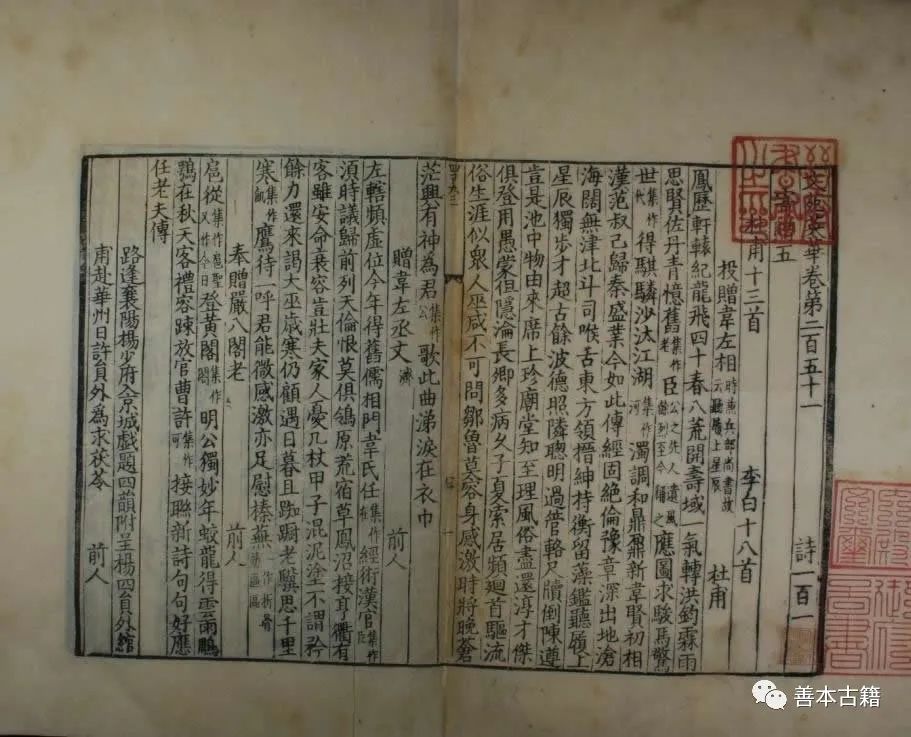 文苑英華卷第二百五十一 詩一百一
五
杜甫十三首 李白十八首
投贈韋左相 時兼兵部尚書故云聽履上星辰 杜甫
鳳歷軒轅紀龍飛四十春八荒開壽域一氣轉洪鈞霖雨
思賢佐丹青憶舊集作老臣公之先人遺風餘烈至今稱之應圖求駿馬驚
世集作代得騏驎沙汰江湖集作河濁調和鼎鼐新韋賢初相
漢范叔已歸秦盛業今如此傳經固絶倫豫章深出地滄
海闊無津北斗司喉舌東方領搢紳持衡留藻鑑聽履上
星辰獨步才超古餘波德照隣聰明過管輅尺牘倒陳遵
豈是池中物由來席上珍廟堂知至理風俗盡還淳才傑
俱登用愚蒙但隱淪長卿多病久子夏索居頻廻首驅流
俗生涯似衆人巫咸不可問鄒魯莫容身感激時將晚蒼
茫興有神為君集作公歌此曲涕淚在衣巾
贈韋左丞丈濟 前人
左轄頻虛位今年得舊儒相門韋氏任集作在經術漢官集作臣
須時議歸前列天倫恨莫俱鴒原荒宿草鳳沼接亨衢有
客雖安命衰容豈壯夫家人憂几杖甲子混泥塗不謂矜
餘力還來謁大巫歲寒仍顧遇日暮且踟蹰老驥思千里
寒集作飢鷹待一呼君能微感激亦足慰榛蕪
奉贈嚴八閣老 前人
扈從集作扈聖又作今日登黃閣集作閤明公獨妙年蛟龍得雲雨鵰
鶚在秋天客禮容踈放官曹許集作可接聯新詩句句好應
任老夫傳
路逢襄陽楊少府入京城戲題四韻附呈楊四員外綰
甫赴華州日許員外為求茯苓 前人
善本古籍